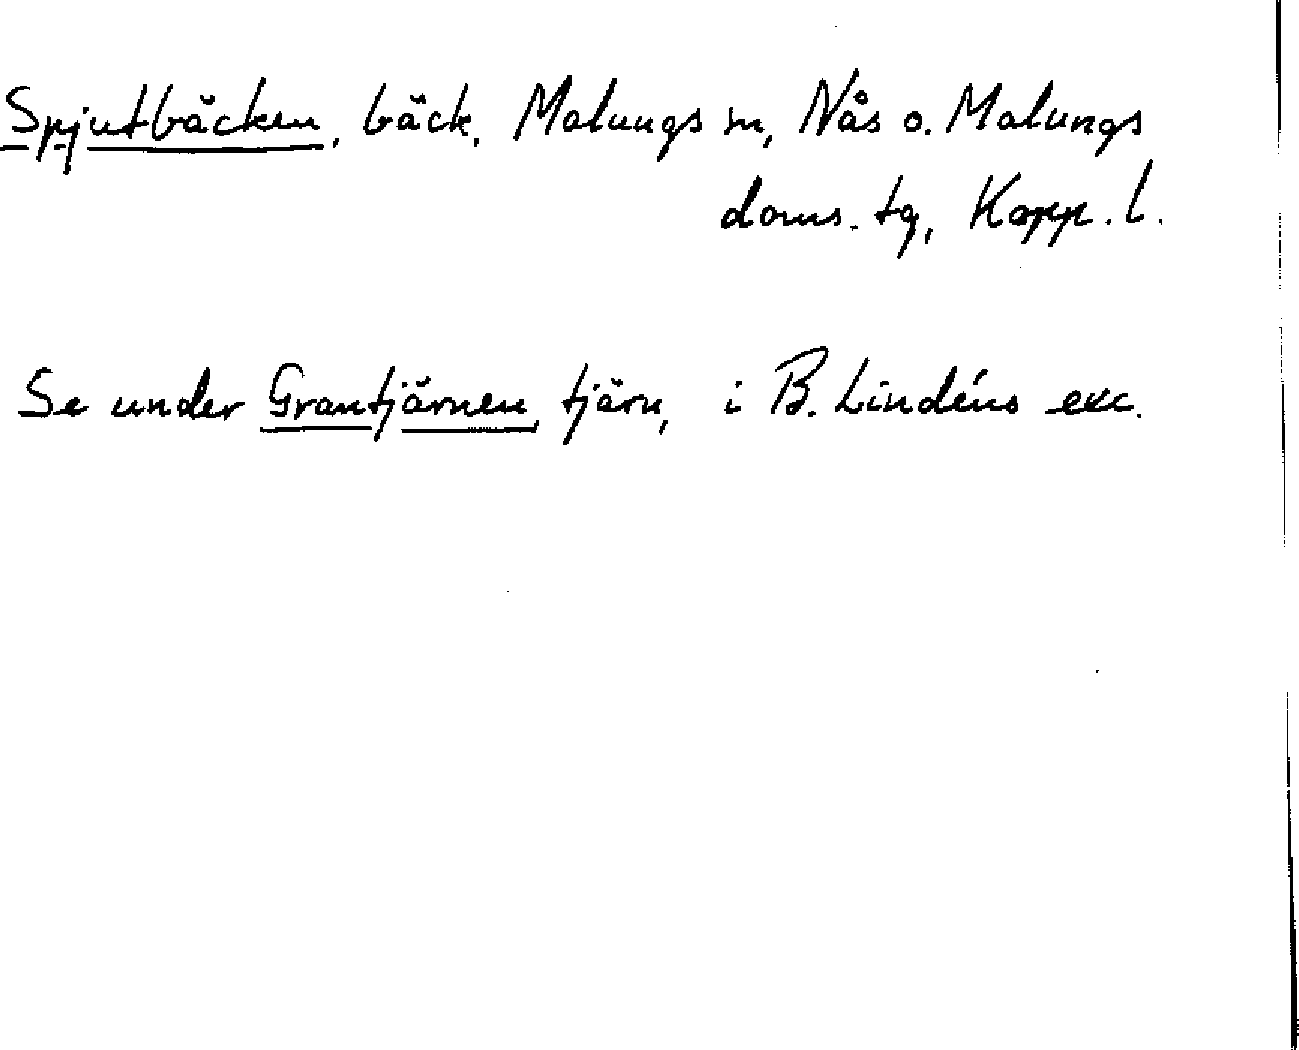 Spjutbäcken, bäck, Malungs sn, Nås o. Malungs
doms. tg, Kopp. l.
Se under Grantjärnen, tjärn, i B. Lindéns exc.